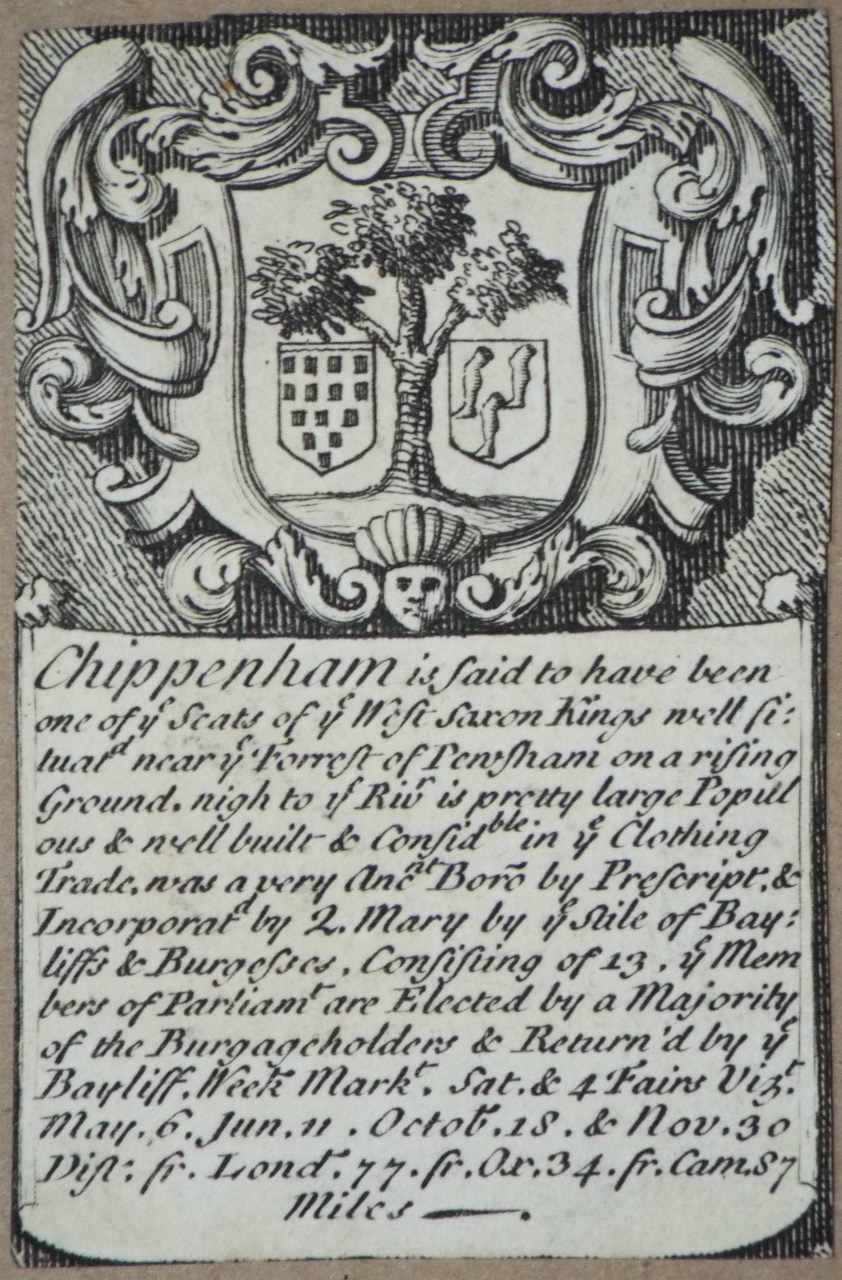 Chippenham is ſaid to have been
one of yᵉ Seats of yᵉ Weſt Saxon Kings well ſi:
tuatᵈ near yᵉ Forreſt of Pewſham on a riſing
Ground. nigh to yᵉ Rivʳ is pretty large Popul
ous & well built & Conſidᵇˡᵉ in yᵉ Clothing
Trade, was a very Ancⁿᵗ Borõ by Preſcript, &
Incorporatᵈ by Q. Mary by yᵉ Stile of Bay:
liffs & Burgeſses, Conſiſting of 13, yᵉ Mem
bers of Parliamᵗ are Elected by a Majority
of the Burgageholders & Return'd by yᵉ
Bayliff. Week Markᵗ. Sat. & 4 Fairs Vizᵗ.
May. 6. Jun. 11. Octobʳ. 18. & Nov. 30
Diſt: fr. Londᵗ. 77. fr. Ox. 34. fr. Cam. 87
Miles —.